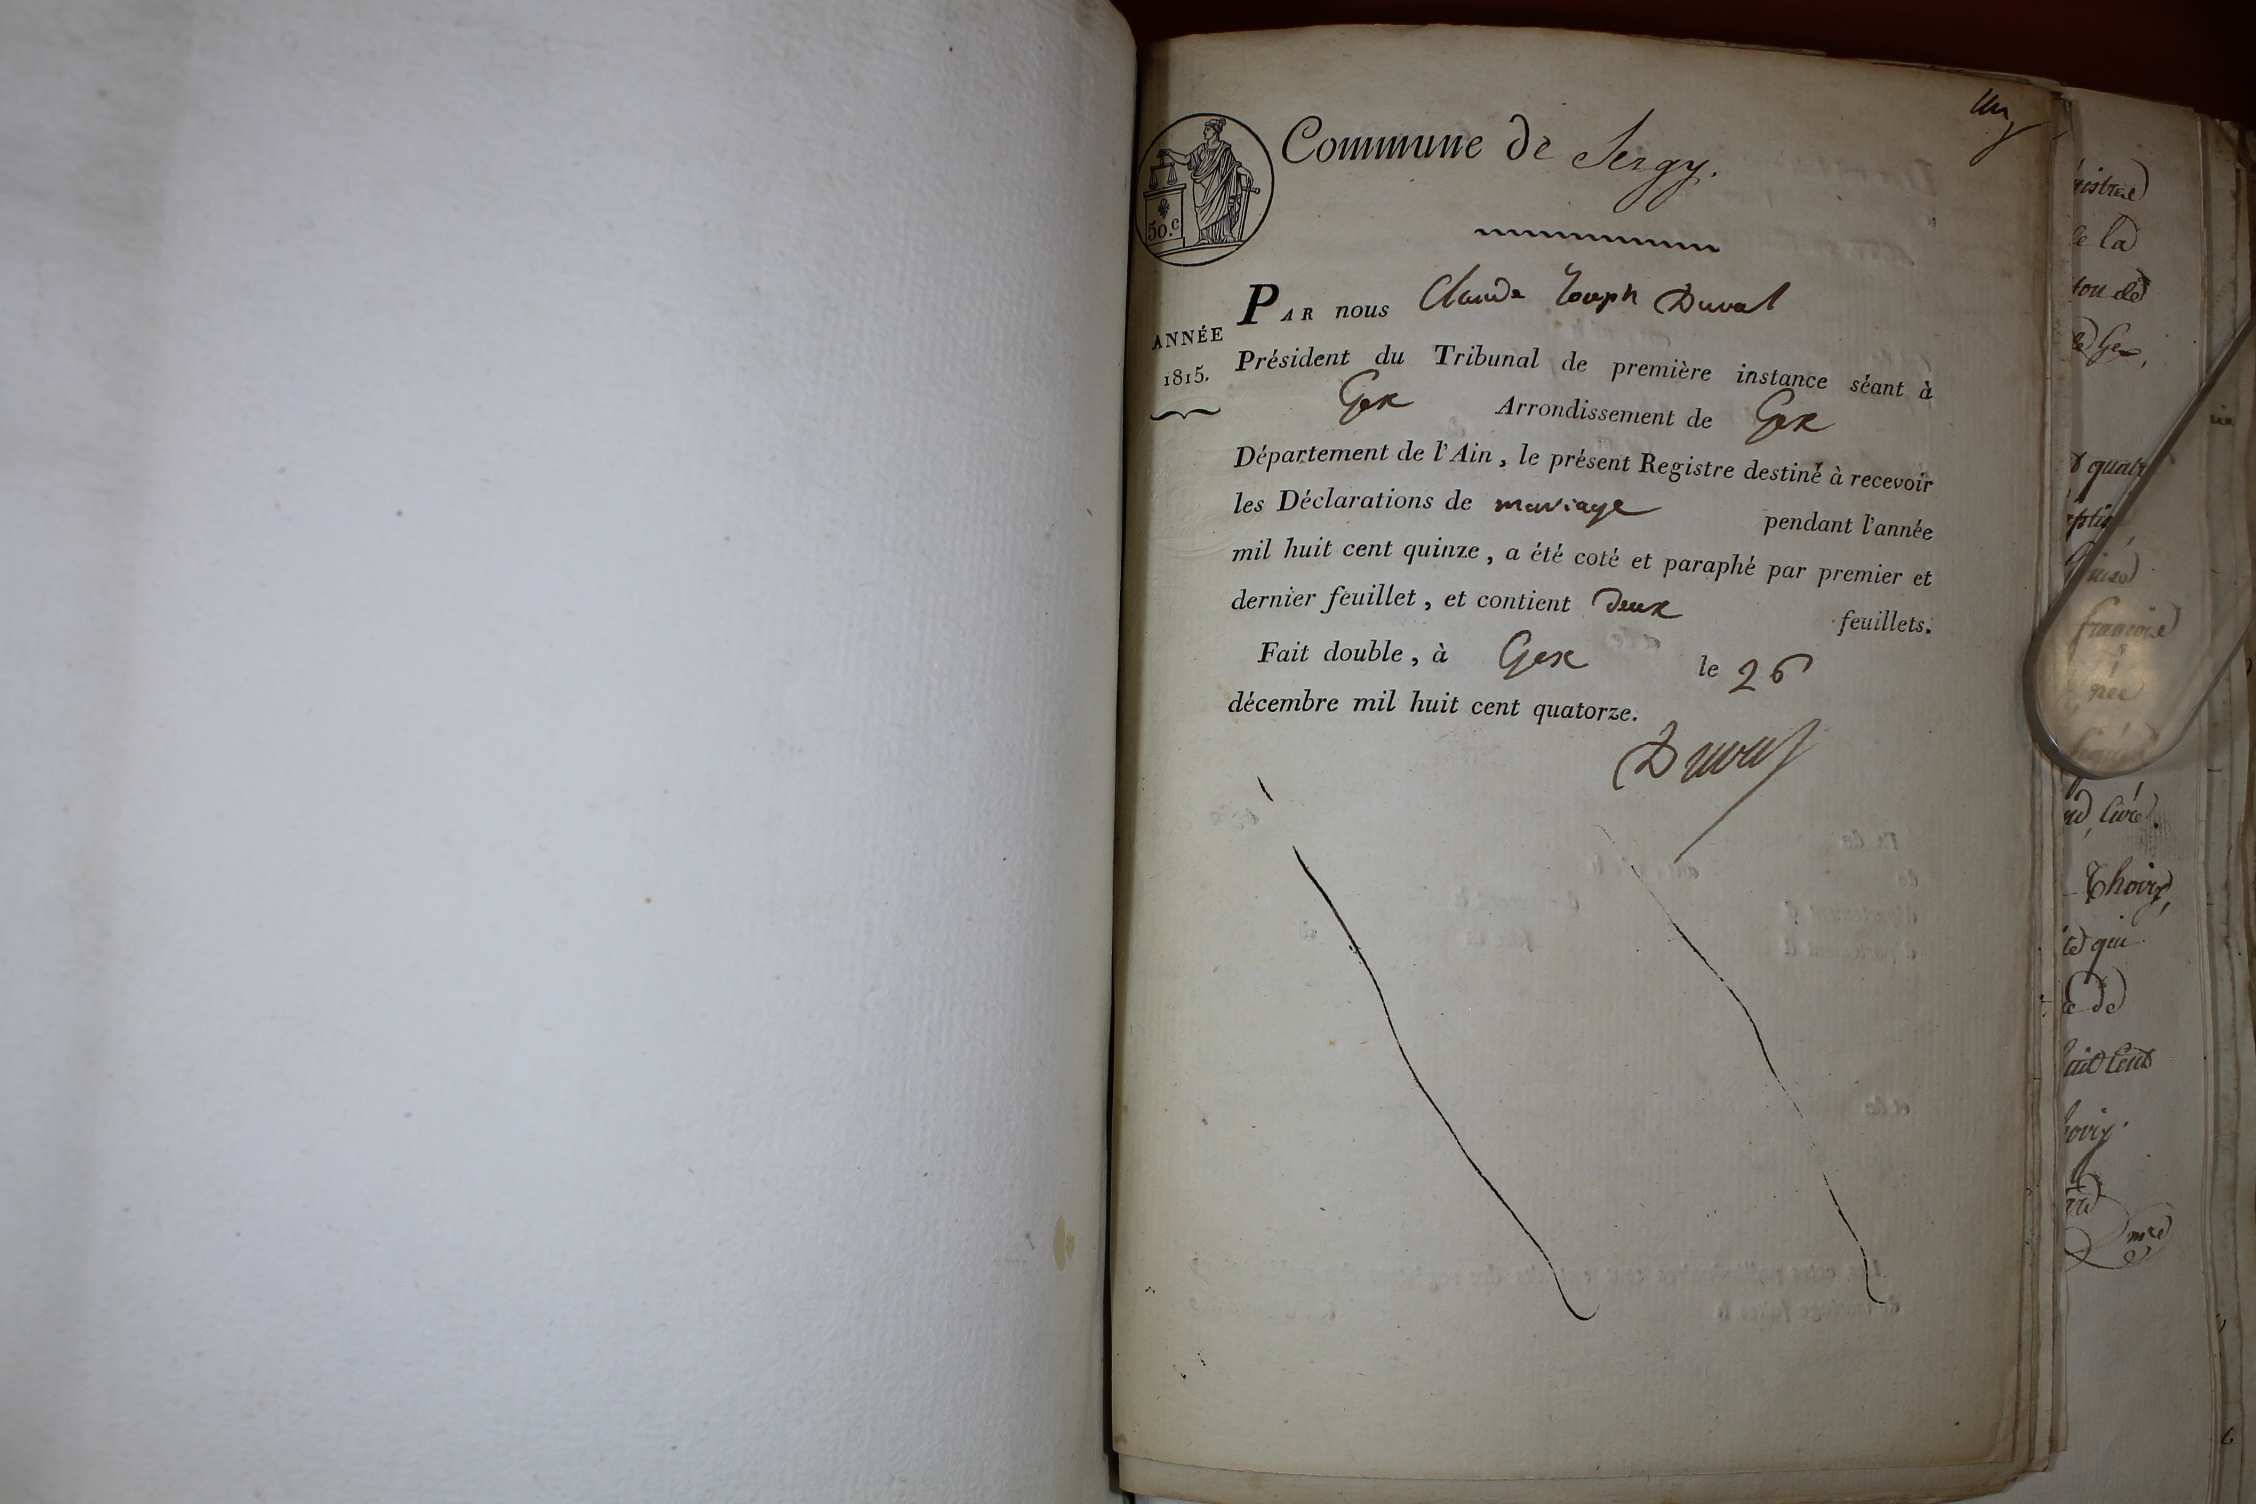 un
Commune de Sergy.
50.c
PAR nous Claude Joseph Duval
ANNÉE
1815.
Président du Tribunal de première instance séant à
Gex Arrondissement de Gex
Département de l'Ain, le présent Registre destiné à recevoir
les Déclarations de mariage pendant l'année
mil huit cent quinze, a été coté et paraphé par premier et
dernier feuillet, et contient deux feuillets.
Fait double, à Gex le 26
décembre mil huit cent quatorze.
Duval
de la
de Gex,
quatr
françoise
née
Thoiry,
qui
de
cent